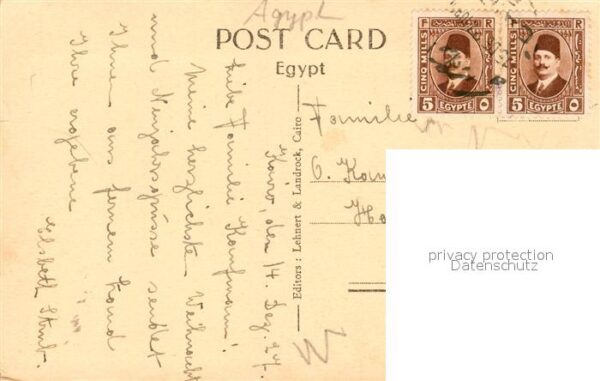 Ägypt
POST CARD
Egypt
F R
CINQ MILLS
5 EGYPTE
F R
CINQ MILLS
5 EGYPTE
Kairo, den 14. Dez. 27.
Liebe Familie Kaufmann!
Meine herzlichsten Weihnachts
und Neujahrsgrüsse sendet
Ihnen aus fernem Land
Ihre ergebene
Elsbeth
Editors : Lehnert & Landrock, Cairo
Familie
privacy protection
Datenschutz